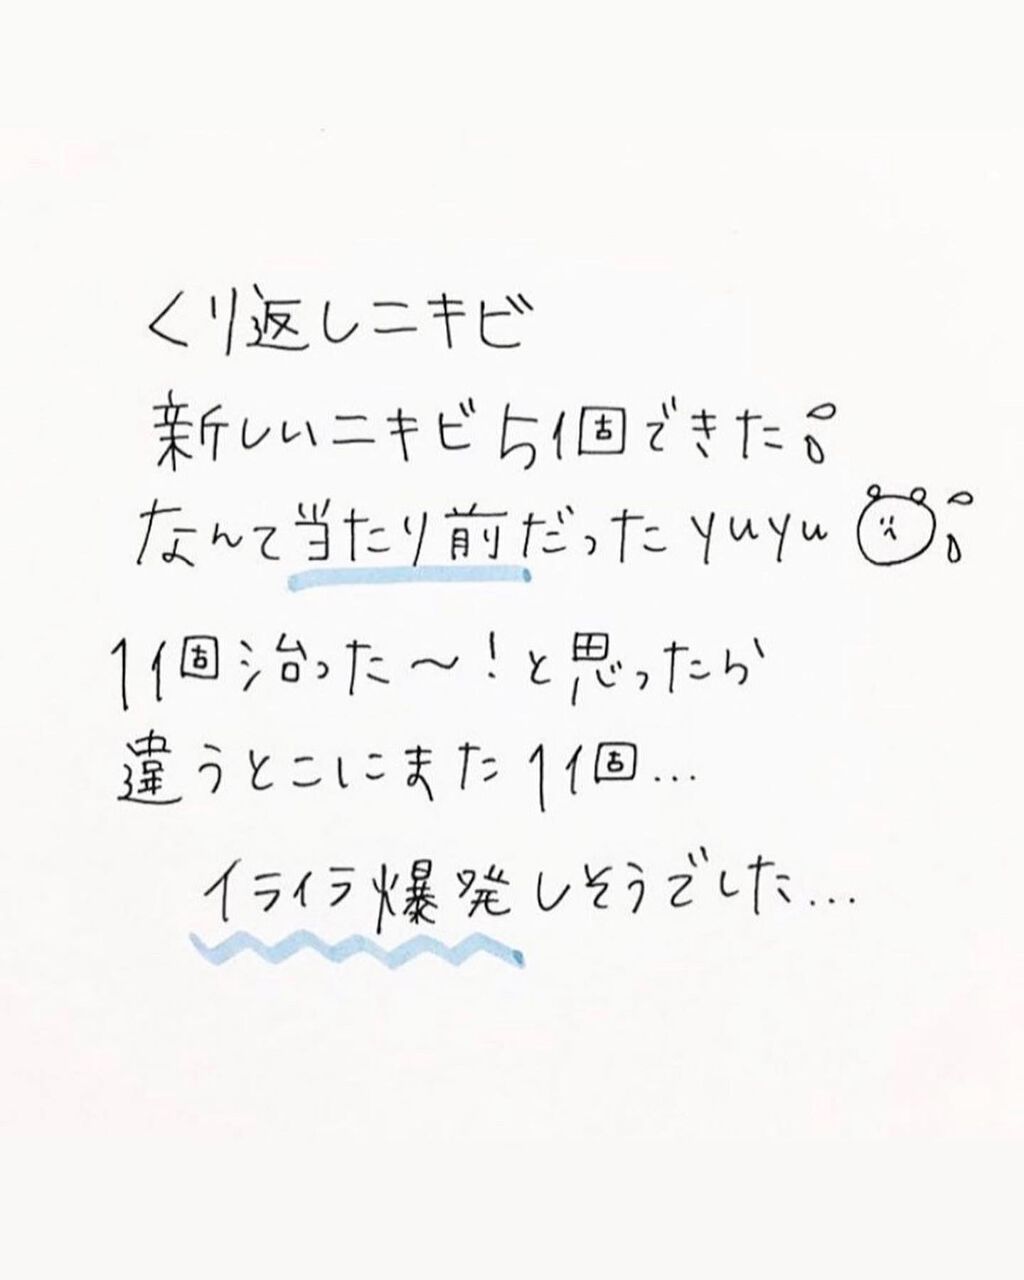 くり返しニキビ
新しいニキビ5個できた
なんて当たり前だったyuyu
1個治った〜!と思ったら
違うとこにまた1個...
イライラ爆発しそうでした...